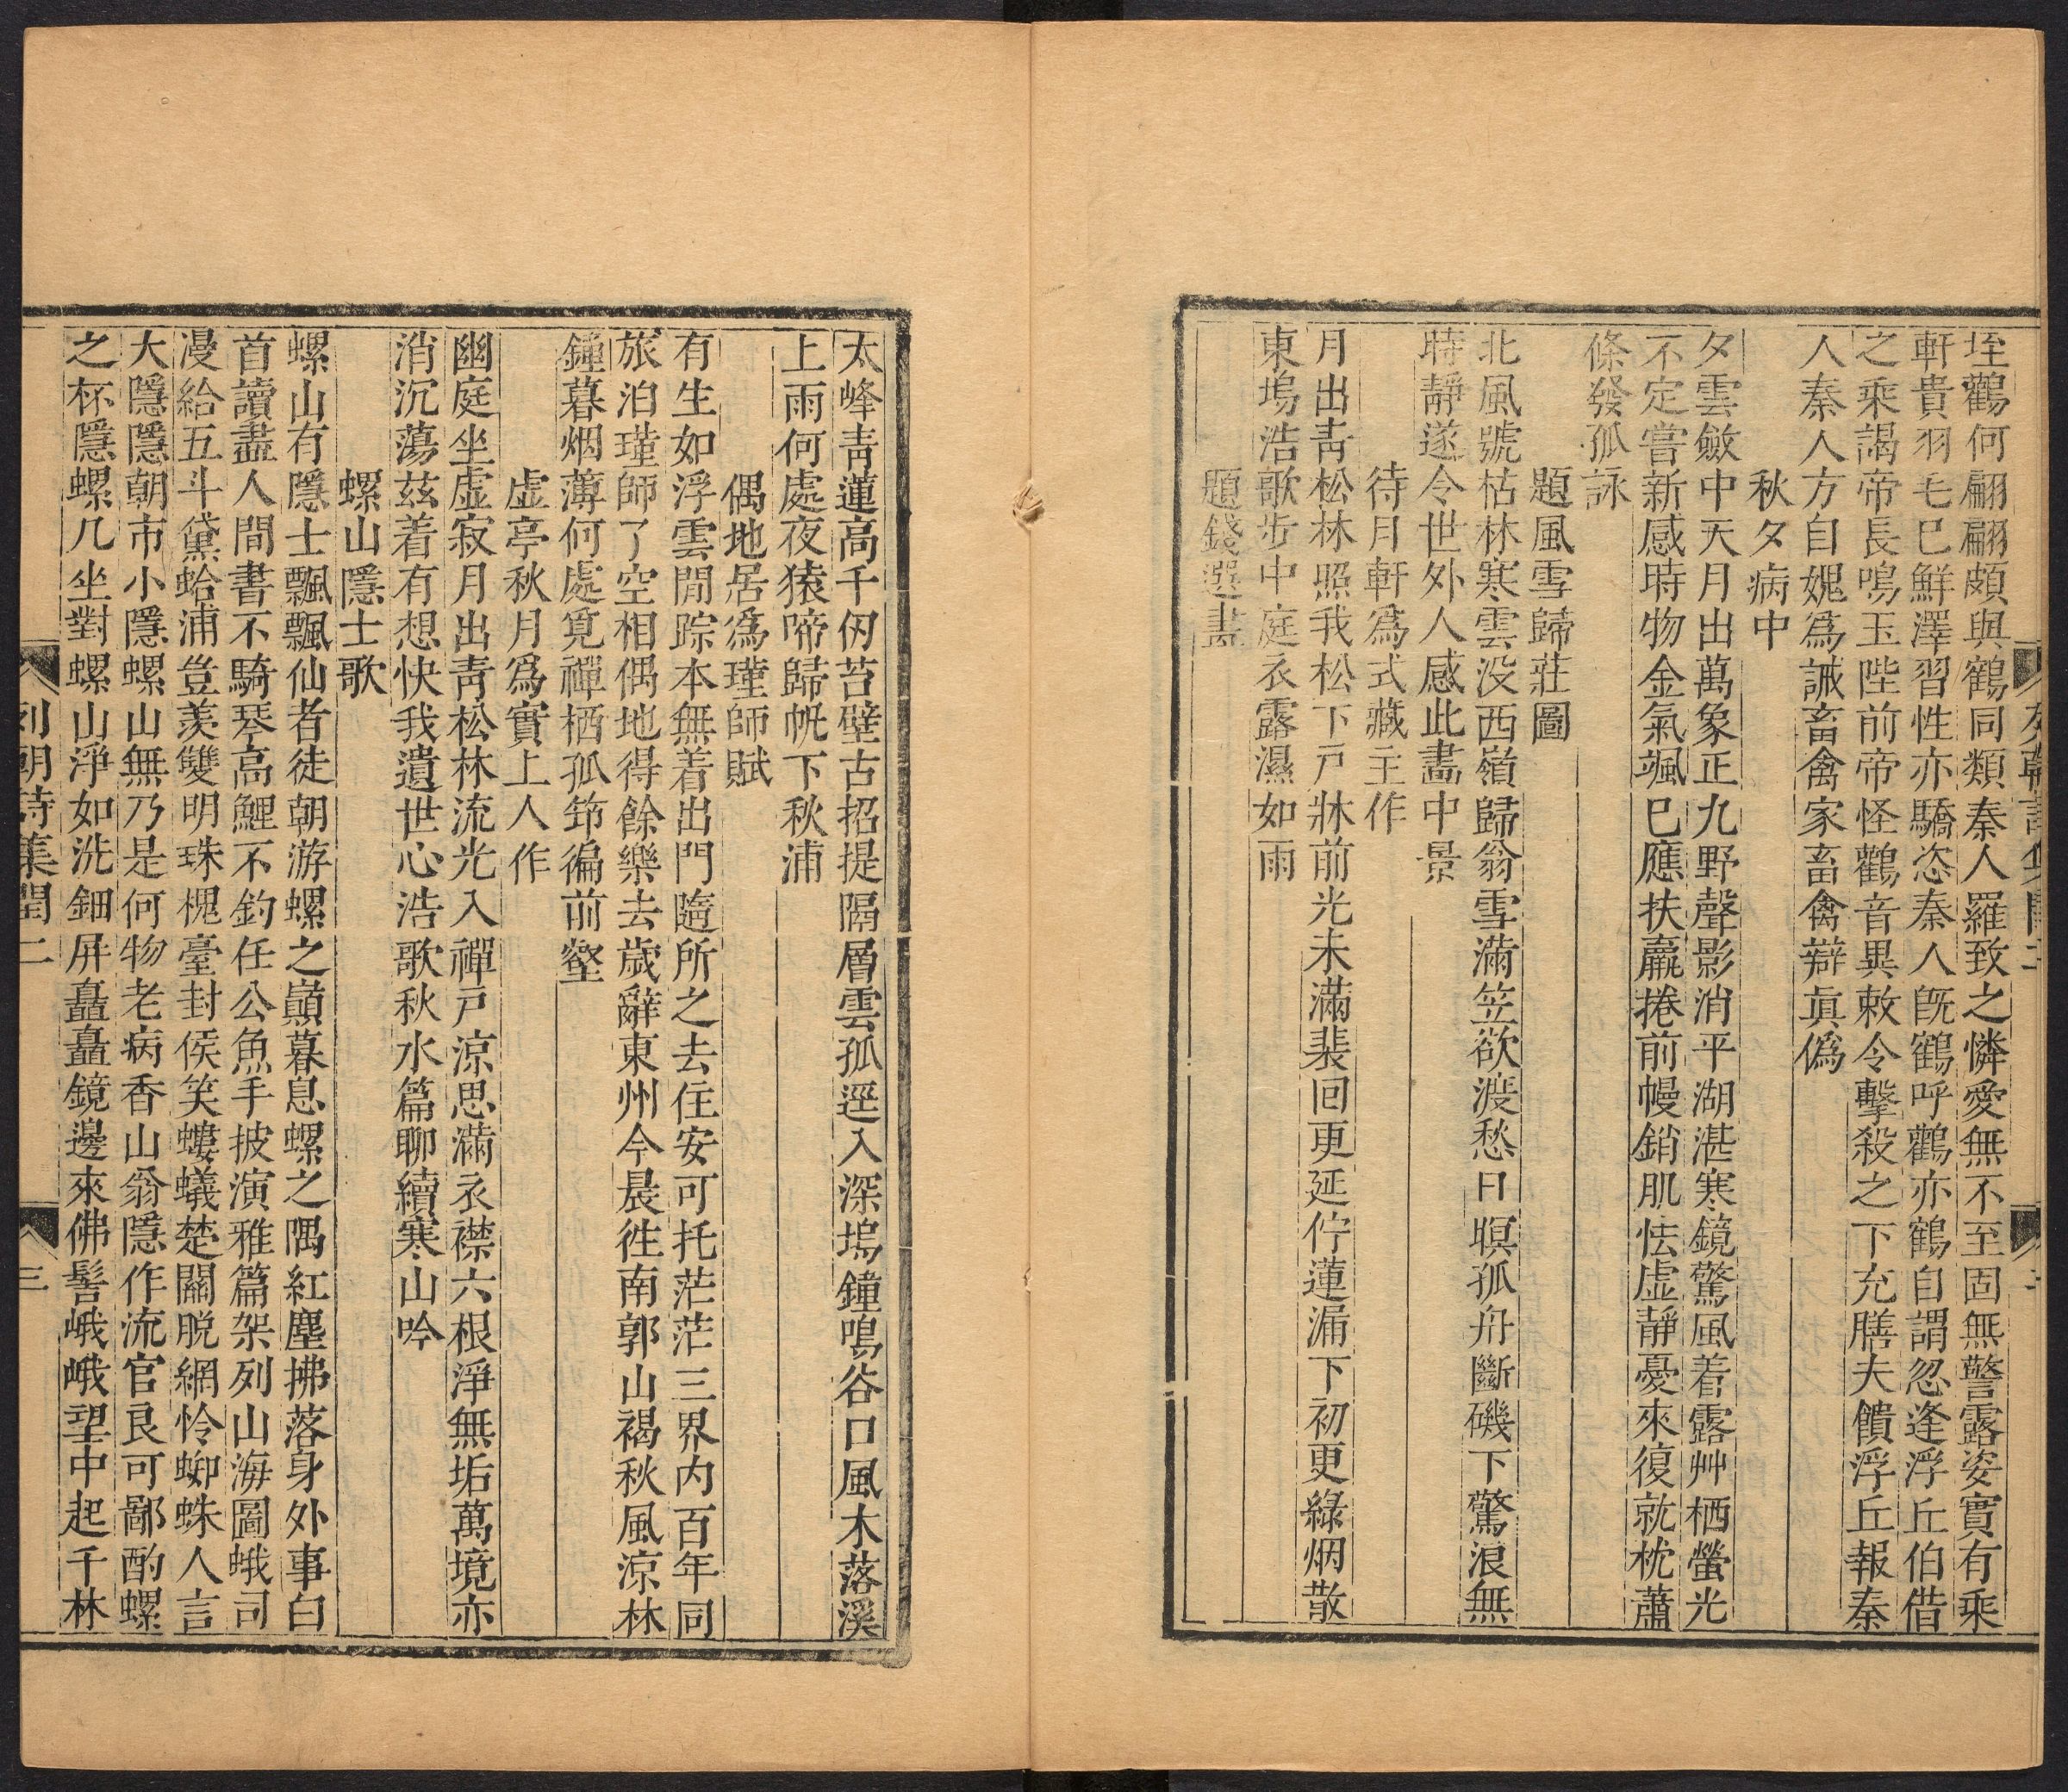 垤鸛何翩翩頗與鶴同類秦人羅致之憐愛無不至固無警露姿實有乘
軒貴羽毛已鮮澤習性亦驕恣秦人旣鶴呼鸛亦鶴自謂忽逢浮丘伯借
之乘謁帝長鳴玉陛前帝怪鸛音異敕令擊殺之下充膳夫饋浮丘報秦
人秦人方自媿爲誡畜禽家畜禽辯眞僞
秋夕病中
夕雲斂中天月出萬象正九野聲影消平湖湛寒鏡驚風着露艸栖螢光
不定嘗新感時物金氣颯已應扶羸捲前幔銷肌怯虛靜憂來復就枕蕭
條發孤詠
題風雪歸莊圖
北風號枯林寒雲没西嶺歸翁雪滿笠欲渡愁日暝孤舟斷磯下驚浪無
時靜遂令世外人感此畵中景
待月軒爲式藏主作
月出靑松林照我松下戸牀前光未滿裴回更延佇蓮漏下初更綠烟散
東塢浩歌步中庭衣露濕如雨
題錢選畵
太峰靑蓮高千仞苔壁古招提隔層雲孤逕入深塢鐘鳴谷口風木落溪
上雨何處夜猿啼歸帆下秋浦
偶地居爲瑾師賦
有生如浮雲閒踪本無着出門隨所之去住安可托茫茫三界内百年同
旅泊瑾師了空相偶地得餘樂去歲辭東州今晨徃南郭山褐秋風凉林
鐘暮烟薄何處覓禪栖孤筇徧前壑
虛亭秋月爲實上人作
幽庭坐虛寂月出靑松林流光入禪戸凉思滿衣襟六根淨無垢萬境亦
消沉蕩茲着有想快我遺世心浩歌秋水篇聊續寒山吟
螺山隱士歌
螺山有隱士飄飄仙者徒朝游螺之巓暮息螺之隅紅塵拂落身外事白
首讀盡人間書不騎琴高鯉不釣任公魚手披演雅篇架列山海圖蛾司
漫給五斗黛蛤浦豈羨雙明珠槐臺封侯笑螻蟻楚關脱網怜蜘蛛人言
大隱隱朝市小隱螺山無乃是何物老病香山翁隱作流官良可鄙酌螺
之杯隱螺几坐對螺山淨如洗鈿屏矗矗鏡邊來佛髻峨峨望中起千林
列朝詩集閏二
三